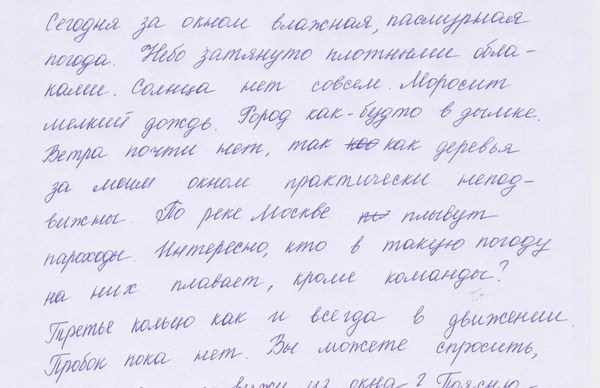 Сегодня за окном влажная, пасмурная
погода. Небо затянуто плотными обла-
ками. Солнца нет совсем. Моросит
мелкий дождь. Город как-будто в дымке.
Ветра почти нет, так как деревья
за моим окном практически непод-
вижны. По реке Москве плывут
пароходы. Интересно, кто в такую погоду
на них плавает, кроме команды?
Третье кольцо как и всегда в движении.
Пробок пока нет. Вы можете спросить,
вижу из окна? Поясню-